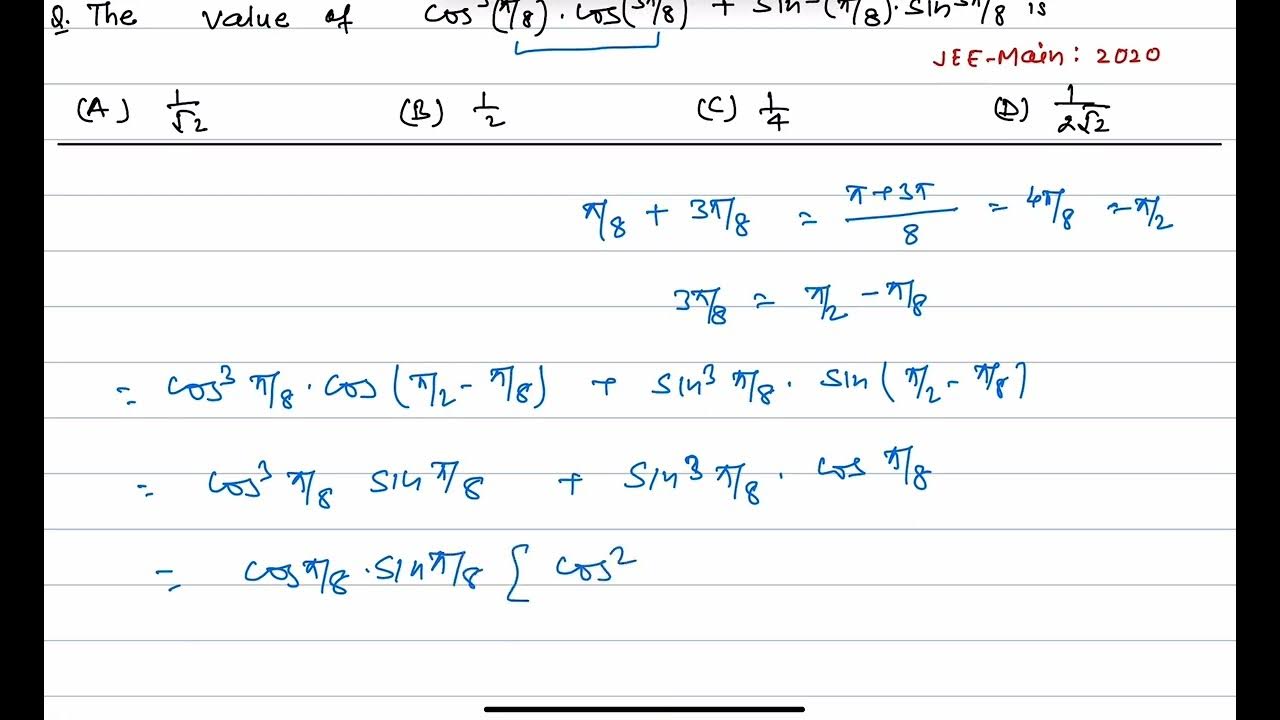 Q. The value of cos³(π/8)·cos(3π/8) + sin³(π/8)·sin3π/8 is
JEE-Main: 2020
(A) 1/√2 (B) 1/2 (C) 1/4 (D) 1/2√2
π/8 + 3π/8 = π+3π/8 = 4π/8 = π/2
3π/8 = π/2 - π/8
= cos³ π/8 · cos (π/2 - π/8) + sin³ π/8 · sin (π/2 - π/8)
= cos³ π/8 sin π/8 + sin³ π/8 · cos π/8
= cos π/8 · sin π/8 [ cos²